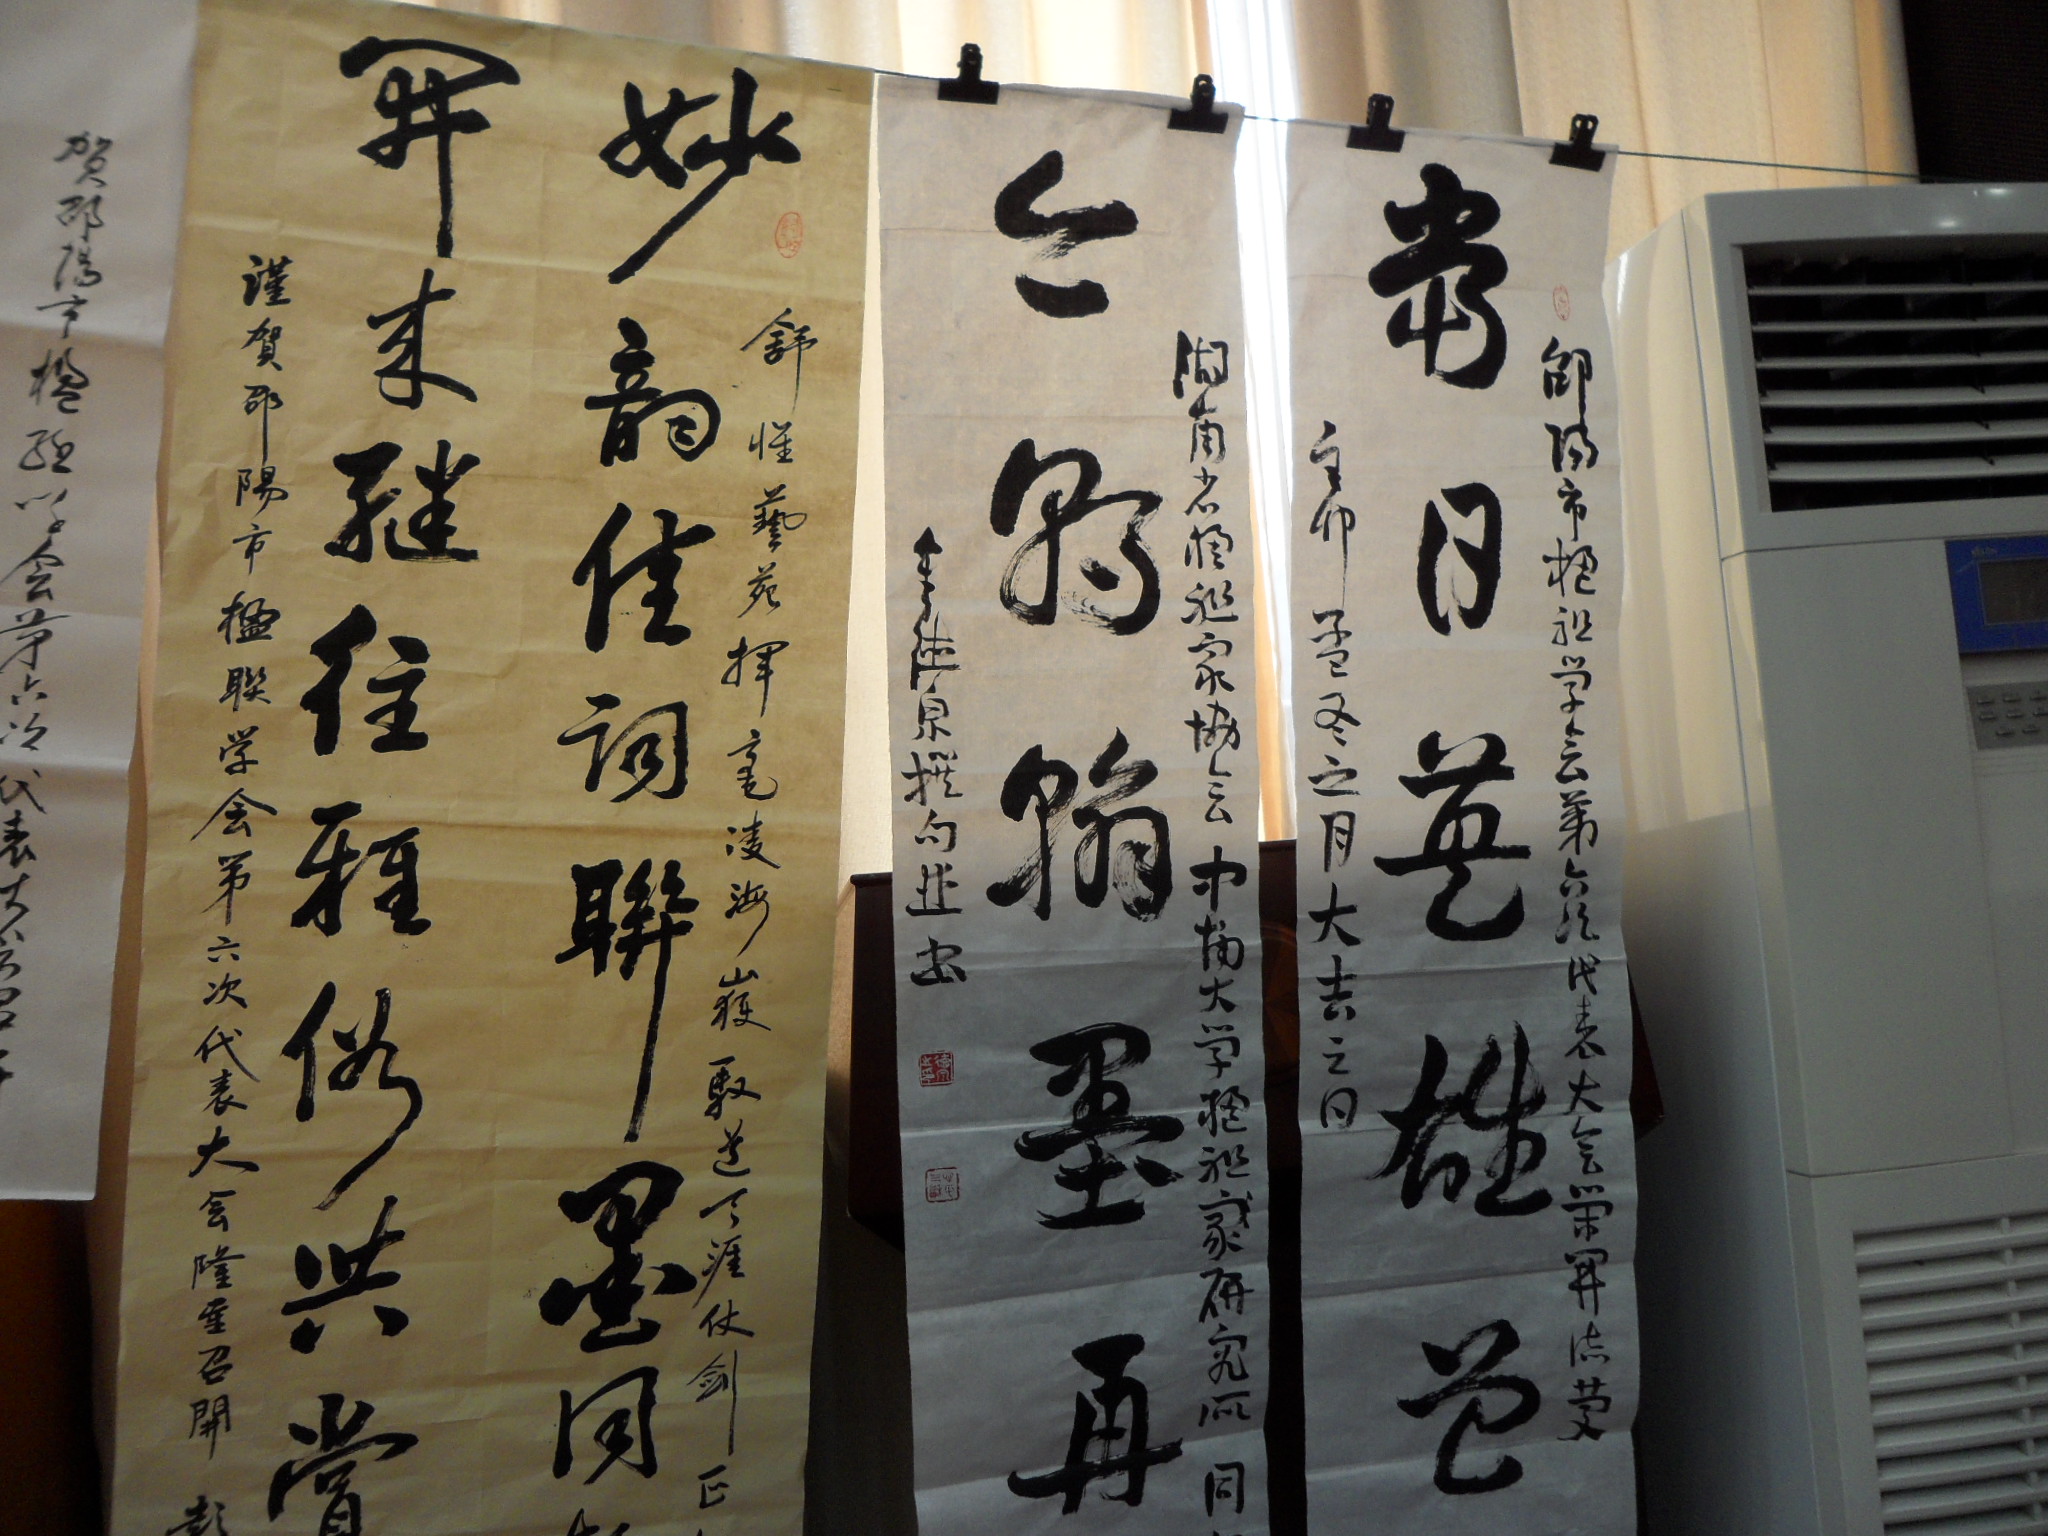 邵陽市楹联学会第六次代表大会荣開志慶
當日英雄
辛卯孟冬之月大吉之日
湖南省楹联家协会中南大学楹联家研究所
今朝翰墨再
李德泉撰句並书
舒怀藝苑挥毫凌海嶽馭道天涯仗剑正
妙韵佳词聯墨同
開来继往雅俗共賞
谨贺邵陽市楹聯学会第六次代表大会隆重召開 彭
贺邵陽市楹联学会第六次代表大会召开